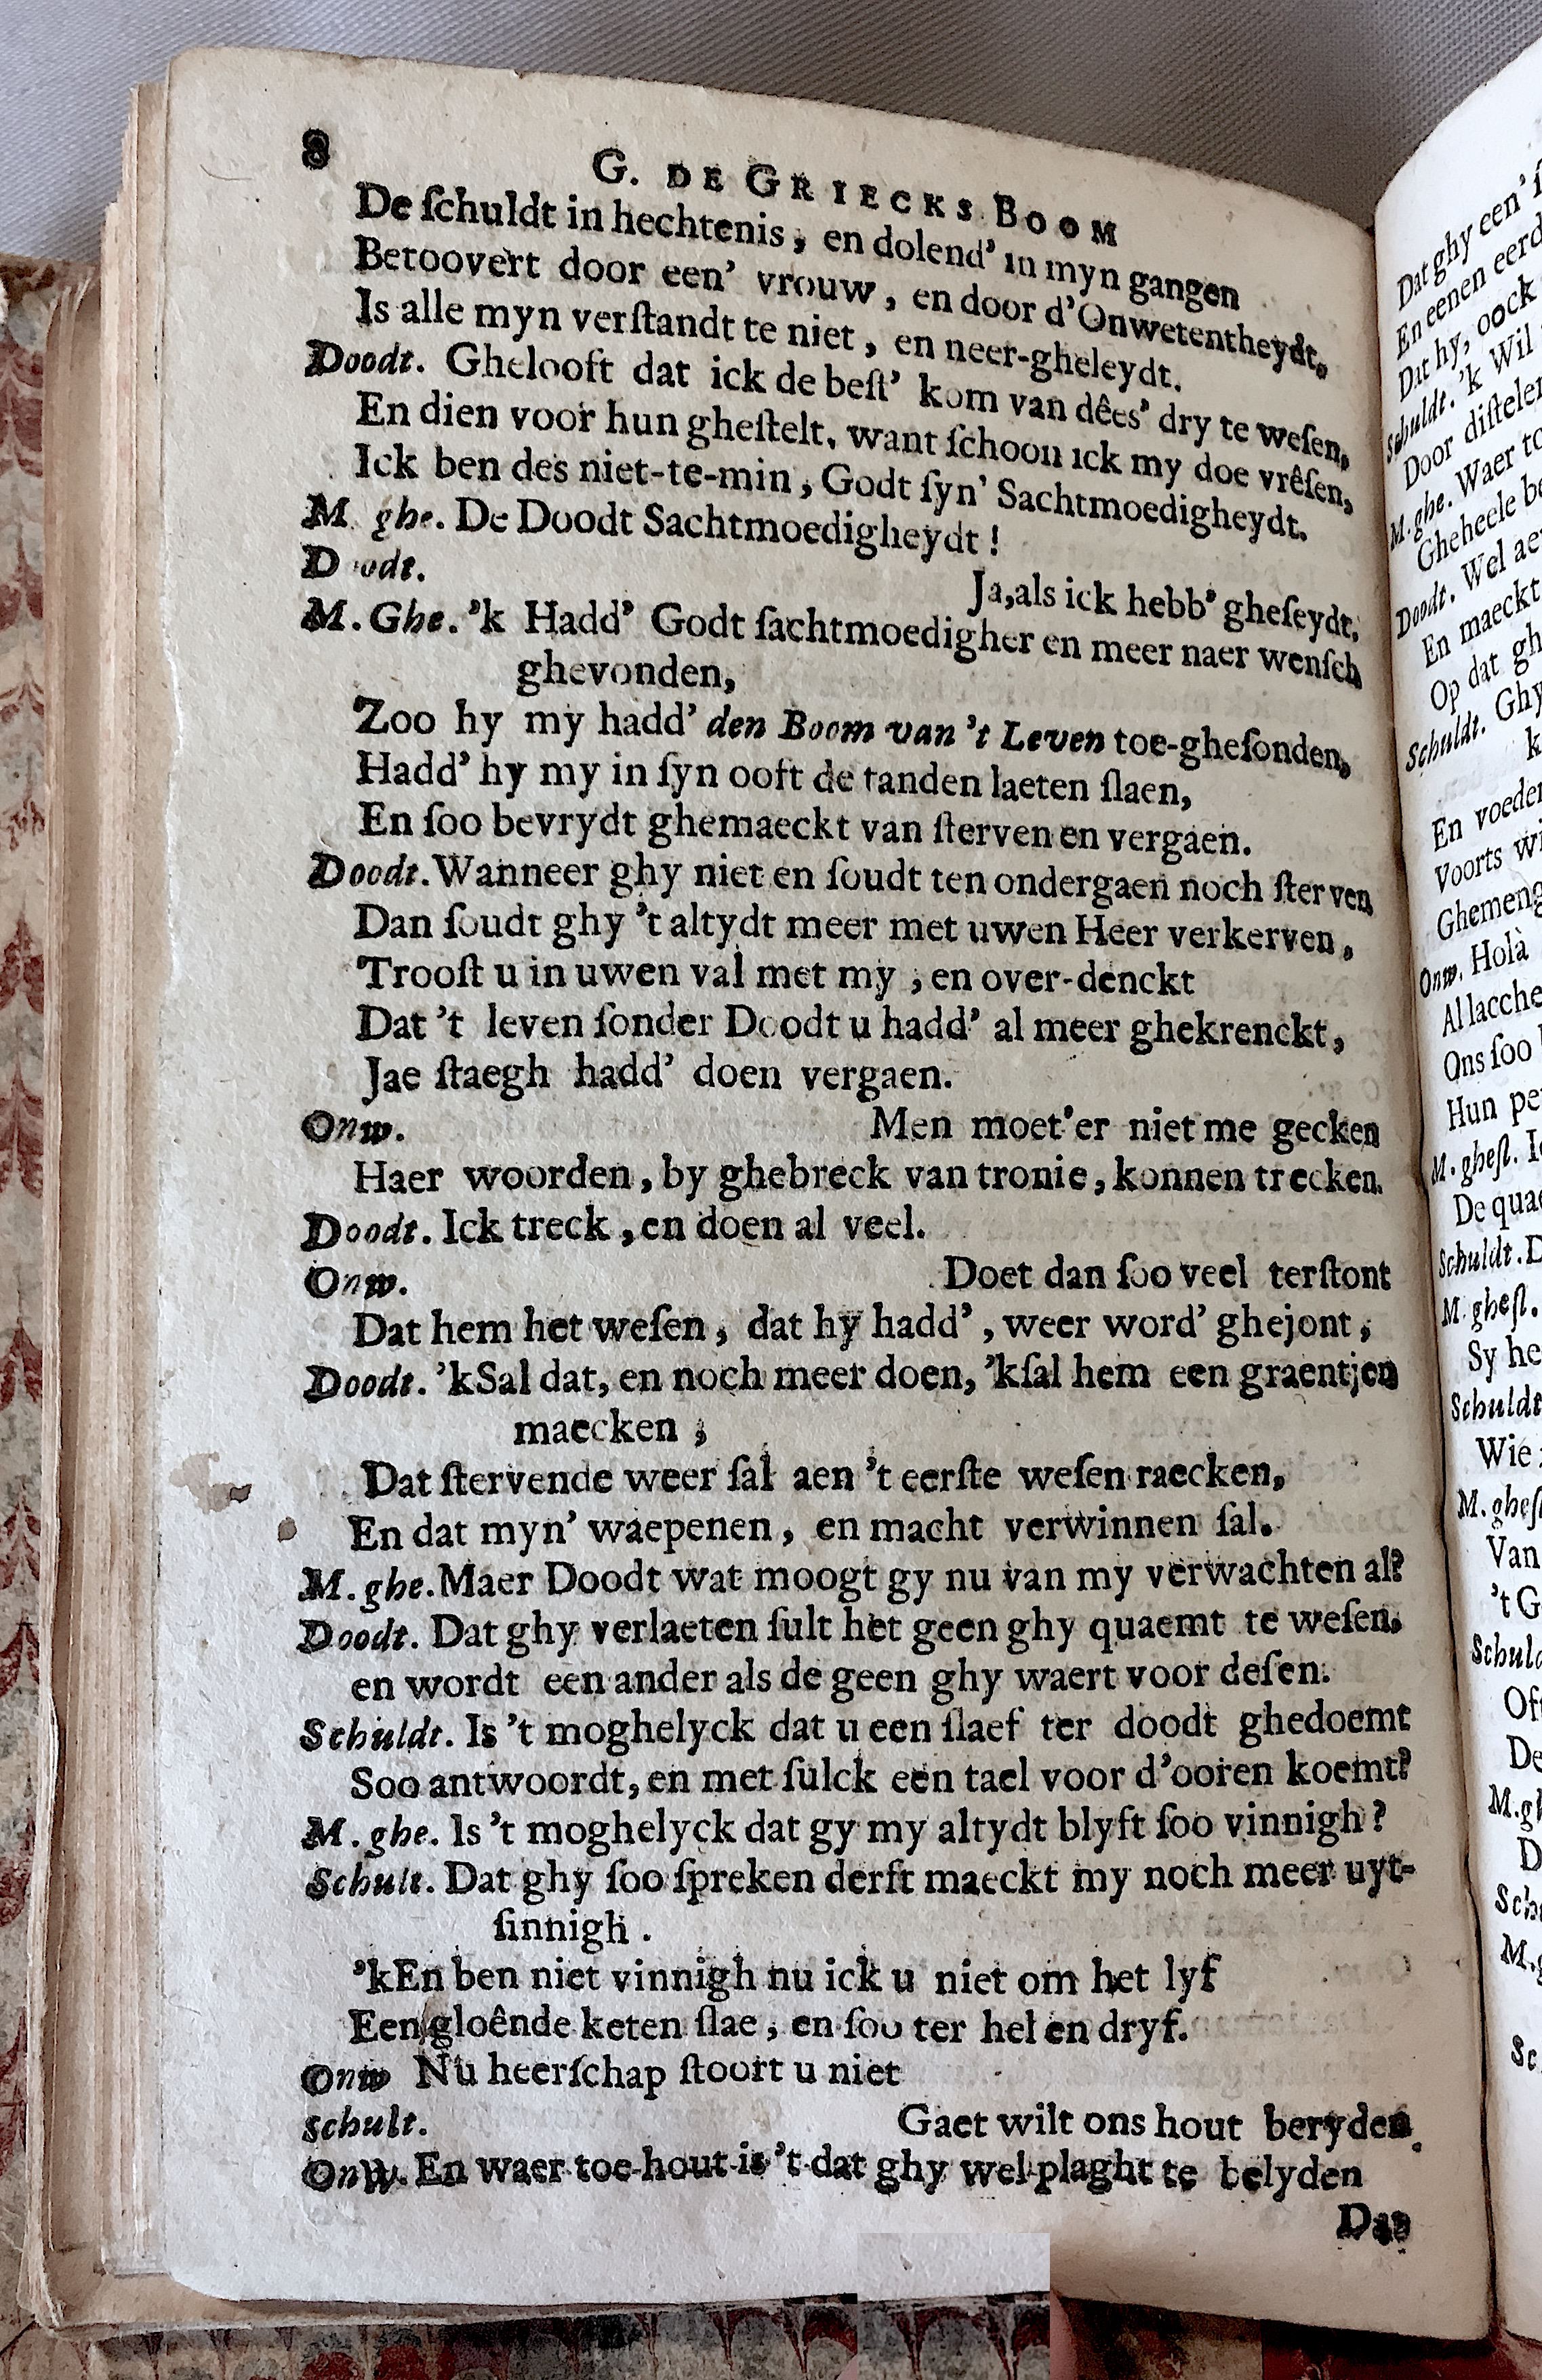 8
G. DE GRIECKS BOOM
De ſchuldt in hechtenis, en dolend' in myn gangen
Betoovert door een' vrouw, en door d'Onwetentheydt,
Is alle myn verſtandt te niet, en neer-gheleydt.
Doodt. Ghelooft dat ick de beſt' kom van dêes' dry te weſen,
En dien voor hun gheſtelt, want ſchoon ick my doe vrêſen,
Ick ben des niet-te-min, Godt ſyn' Sachtmoedigheydt.
M. ghe. De Doodt Sachtmoedigheydt!
Doodt.
Ja, als ick hebb' gheſeydt.
M. Ghe. 'k Hadd' Godt ſachtmoedigher en meer naer wenſch
ghevonden,
Zoo hy my hadd' den Boom van 't Leven toe-gheſonden,
Hadd' hy my in ſyn ooft de tanden laeten ſlaen,
En ſoo bevrydt ghemaeckt van ſterven en vergaen.
Doodt. Wanneer ghy niet en ſoudt ten ondergaen noch ſterven
Dan ſoudt ghy 't altydt meer met uwen Heer verkerven,
Trooſt u in uwen val met my, en over-denckt
Dat 't leven ſonder Doodt u hadd' al meer ghekrenckt,
Jae ſtaegh hadd' doen vergaen.
Onw.
Men moet'er niet me gecken
Haer woorden, by ghebreck van tronie, konnen trecken.
Doodt. Ick treck, en doen al veel.
Onw.
Doet dan ſoo veel terſtont
Dat hem het weſen, dat hy hadd', weer word' ghejont,
Doodt. 'kSal dat, en noch meer doen, 'kſal hem een graentjen
maecken;
Dat ſtervende weer ſal aen 't eerſte weſen raecken,
En dat myn' waepenen, en macht verwinnen ſal.
M. ghe. Maer Doodt wat moogt gy nu van my verwachten al?
Doodt. Dat ghy verlaeten ſult het geen ghy quaemt te weſen,
en wordt een ander als de geen ghy waert voor deſen.
Schuldt. Is 't moghelyck dat u een ſlaef ter doodt ghedoemt
Soo antwoordt, en met ſulck een tael voor d'ooren koemt?
M. ghe. Is 't moghelyck dat gy my altydt blyft ſoo vinnigh?
Schult. Dat ghy ſoo ſpreken derft maeckt my noch meer uyt-
ſinnigh.
'kEn ben niet vinnigh nu ick u niet om het lyf
Een gloênde keten ſlae, en ſoo ter hel en dryf.
Onw Nu heerſchap ſtoort u niet
Schult.
Gaet wilt ons hout beryden.
Onw. En waer toe hout is 't dat ghy wel plaght te belyden
Dat ghy een'
En eenen
Dat hy, oock
Schuldt. 'k Wil
Door
M. ghe. Waer
Gheheele
Doodt. Wel
En maeckt
Op dat
Schuldt. Ghy
En
Voorts
Onw. Holà
Ons ſoo
Hun
M. gheſt.
De
Schuldt.
M. gheſt.
Sy
Schuldt
Wie
Van
't
De